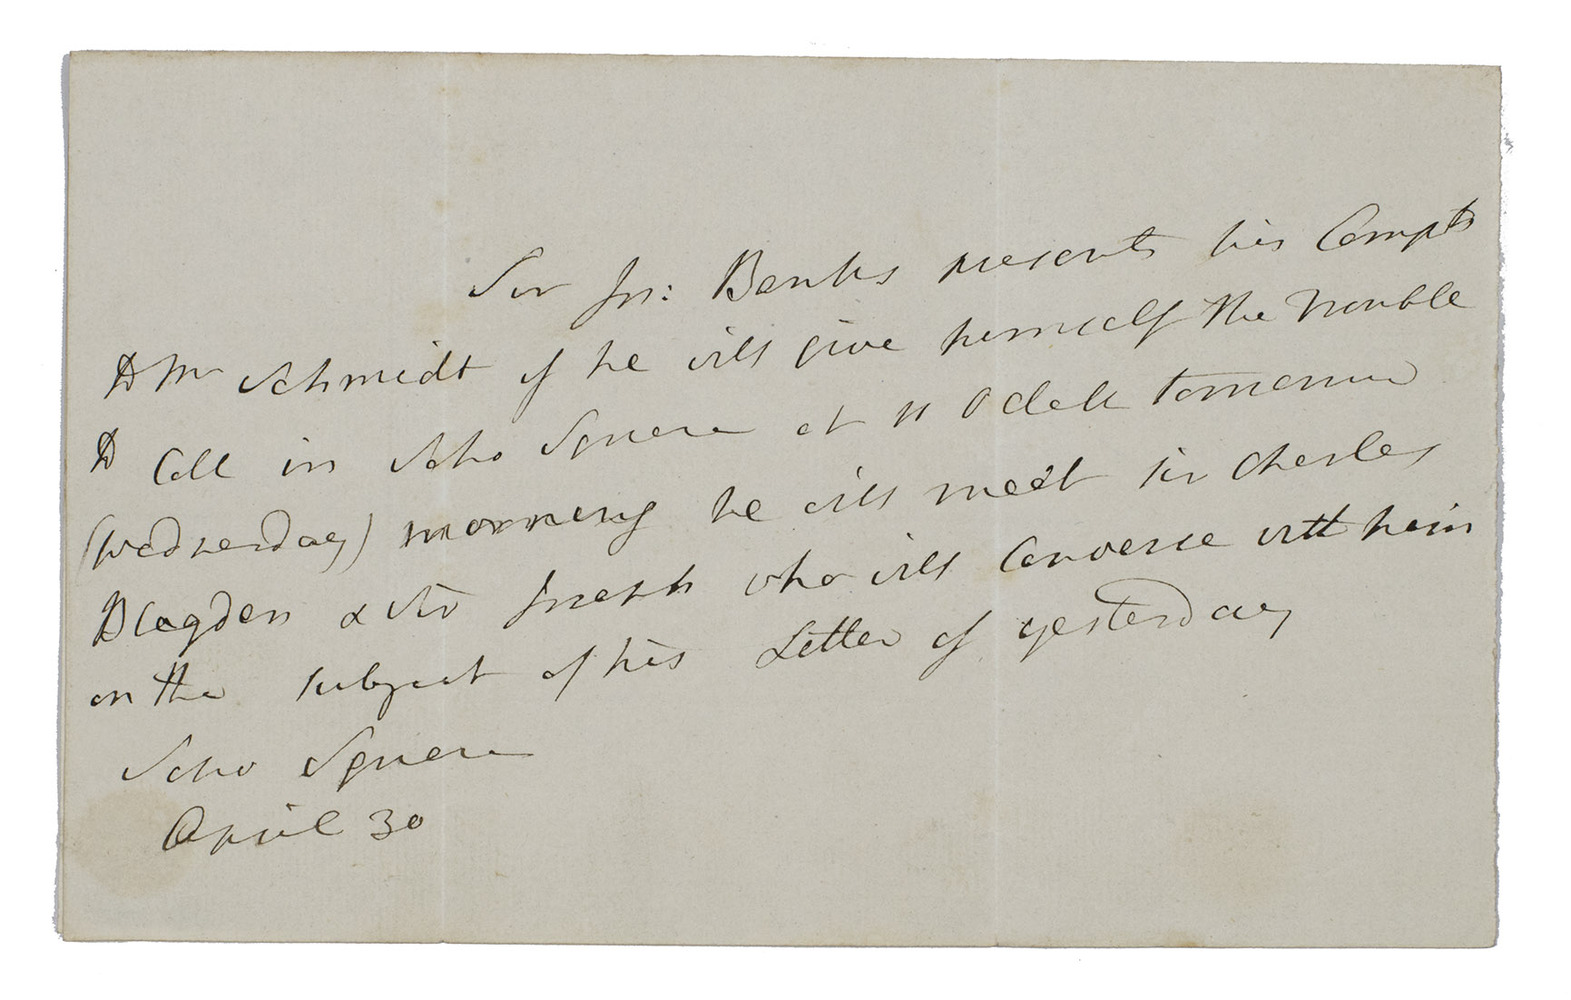 Sir Jos: Banks presents his Compts
to Mr Schmidt if he will give himself the trouble
to Call in Soho Square at 11 O clock tomorrow
(wednesday) morning he will meet Sir Charles
Blagden & Sir Joseph who will Converse with him
on the subject of his Letter of yesterday
Soho Square
April 30